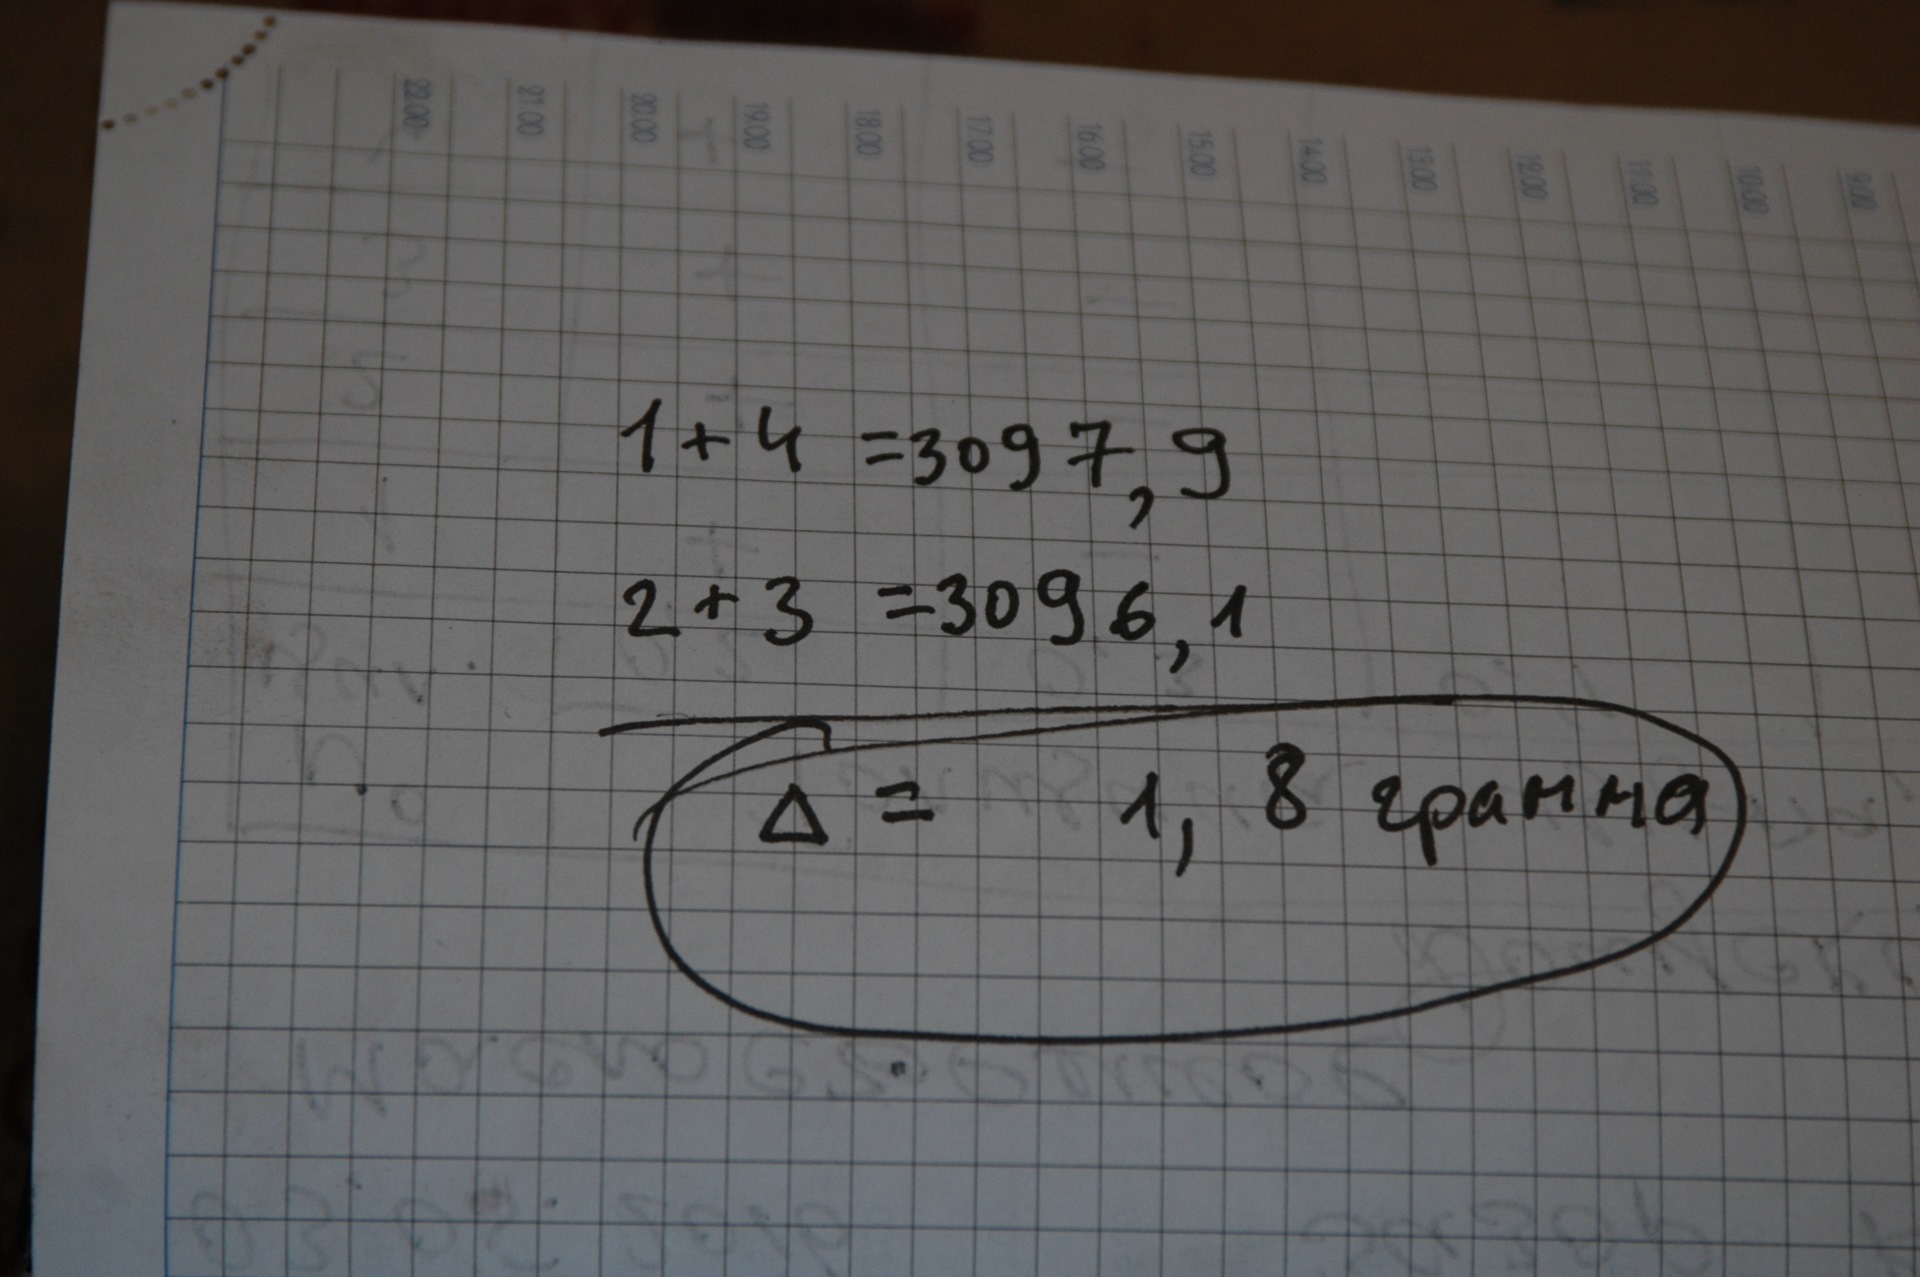 22.00 21.00 20.00 19.00 18.00 17.00 16.00 15.00 14.00 13.00 12.00 11.00 10.00 9.00
1+4 =3097,9
2+3 =3096,1
Δ = 1,8 грамма